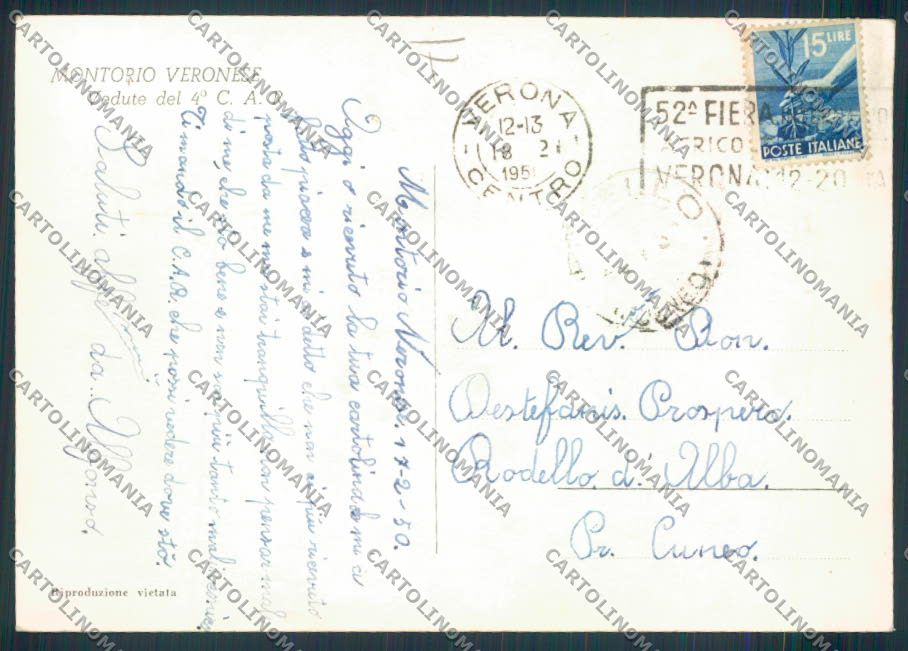 MONTORIO VERONESE
Vedute del 4° C. A. R.
Montorio Veronese 17-2-50.
Oggi o ricevuto la tua cartolina che mi ci
fatto piacere e mi detto che non ai più ricevuto
posta da me ma stai tranquilla non pensar male
di me, che sto bene e non so più tanto mal
Ti mando il C.A.R. che possi vedere dove stò.
Saluti
da
Riproduzione vietata
17
VERONA
12-13
18 2
1951
CENTRO
52ª FIERA
VERONA 12-20
15 LIRE
POSTE ITALIANE
CUNEO
Al Rev. Don.
Destefanis. Prospero.
Rodello d'Alba.
Pr. Cuneo.
CARTOLINOMANIA